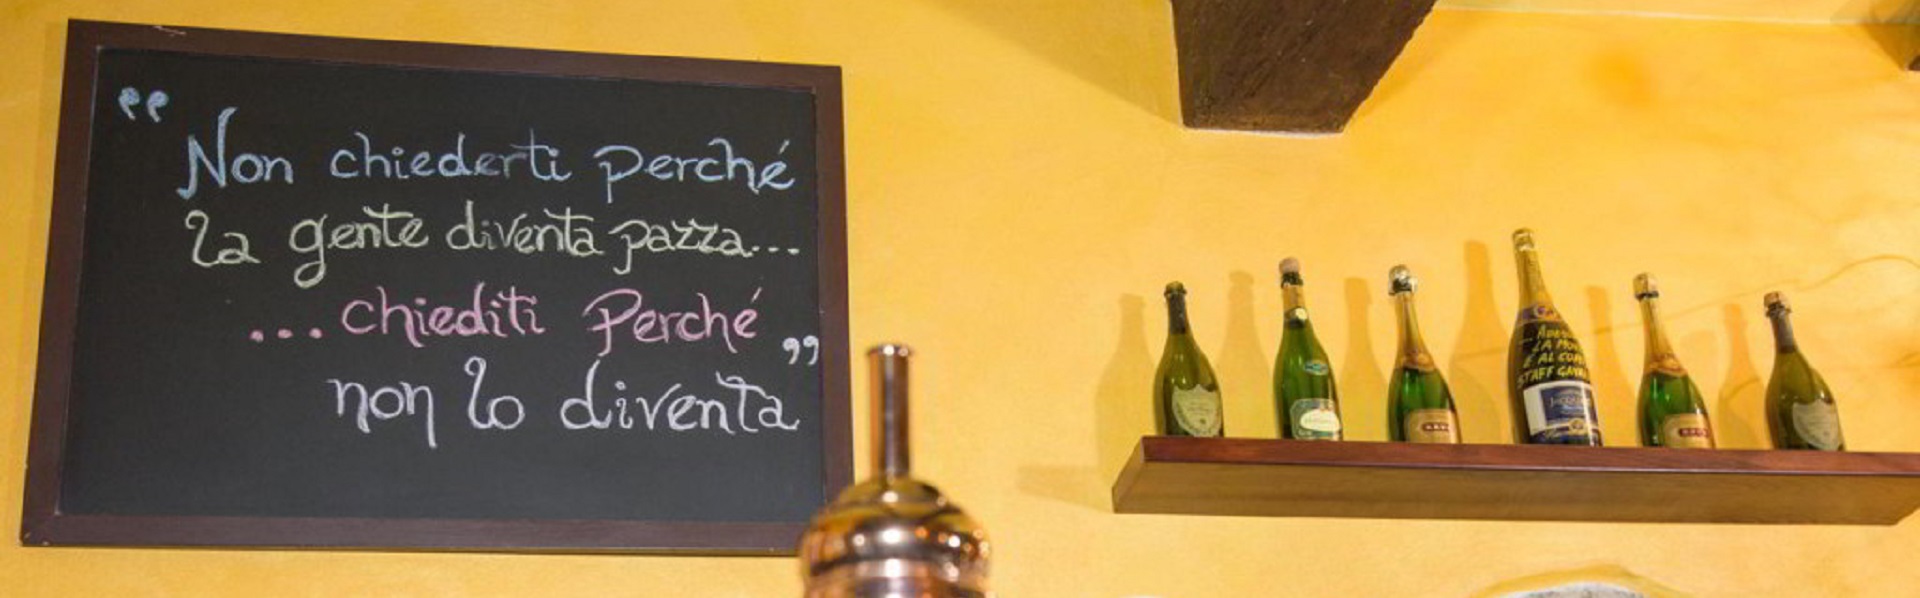 “ Non chiederti perché
la gente diventa pazza...
...chiediti Perché „
non lo diventa
LA
È AL
STAFF